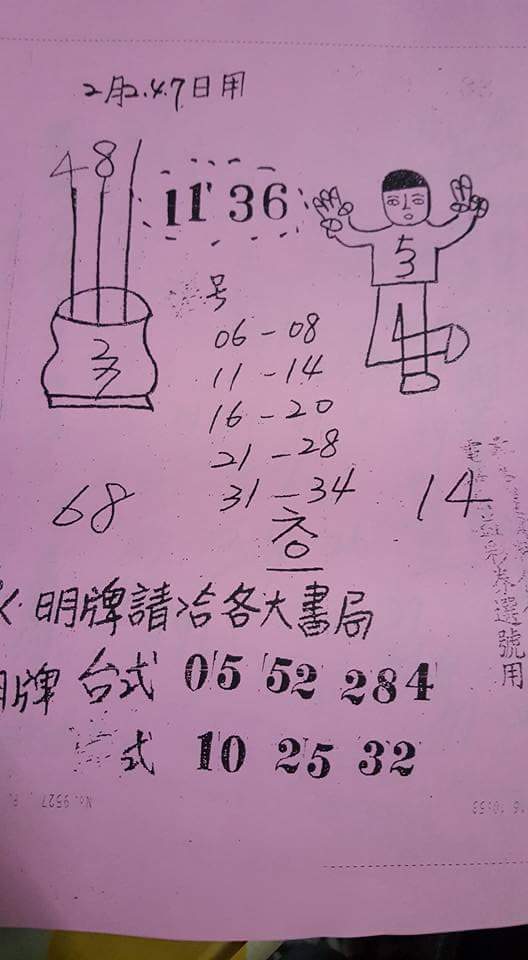 2月2.4.7日用
48
11 36
5
3
号
06-08
11-14
16-20
21-28
31-34
68
14
明牌請洽各大書局
明牌 台式 05 52 284
式 10 25 32
彩券選號用
No.9527